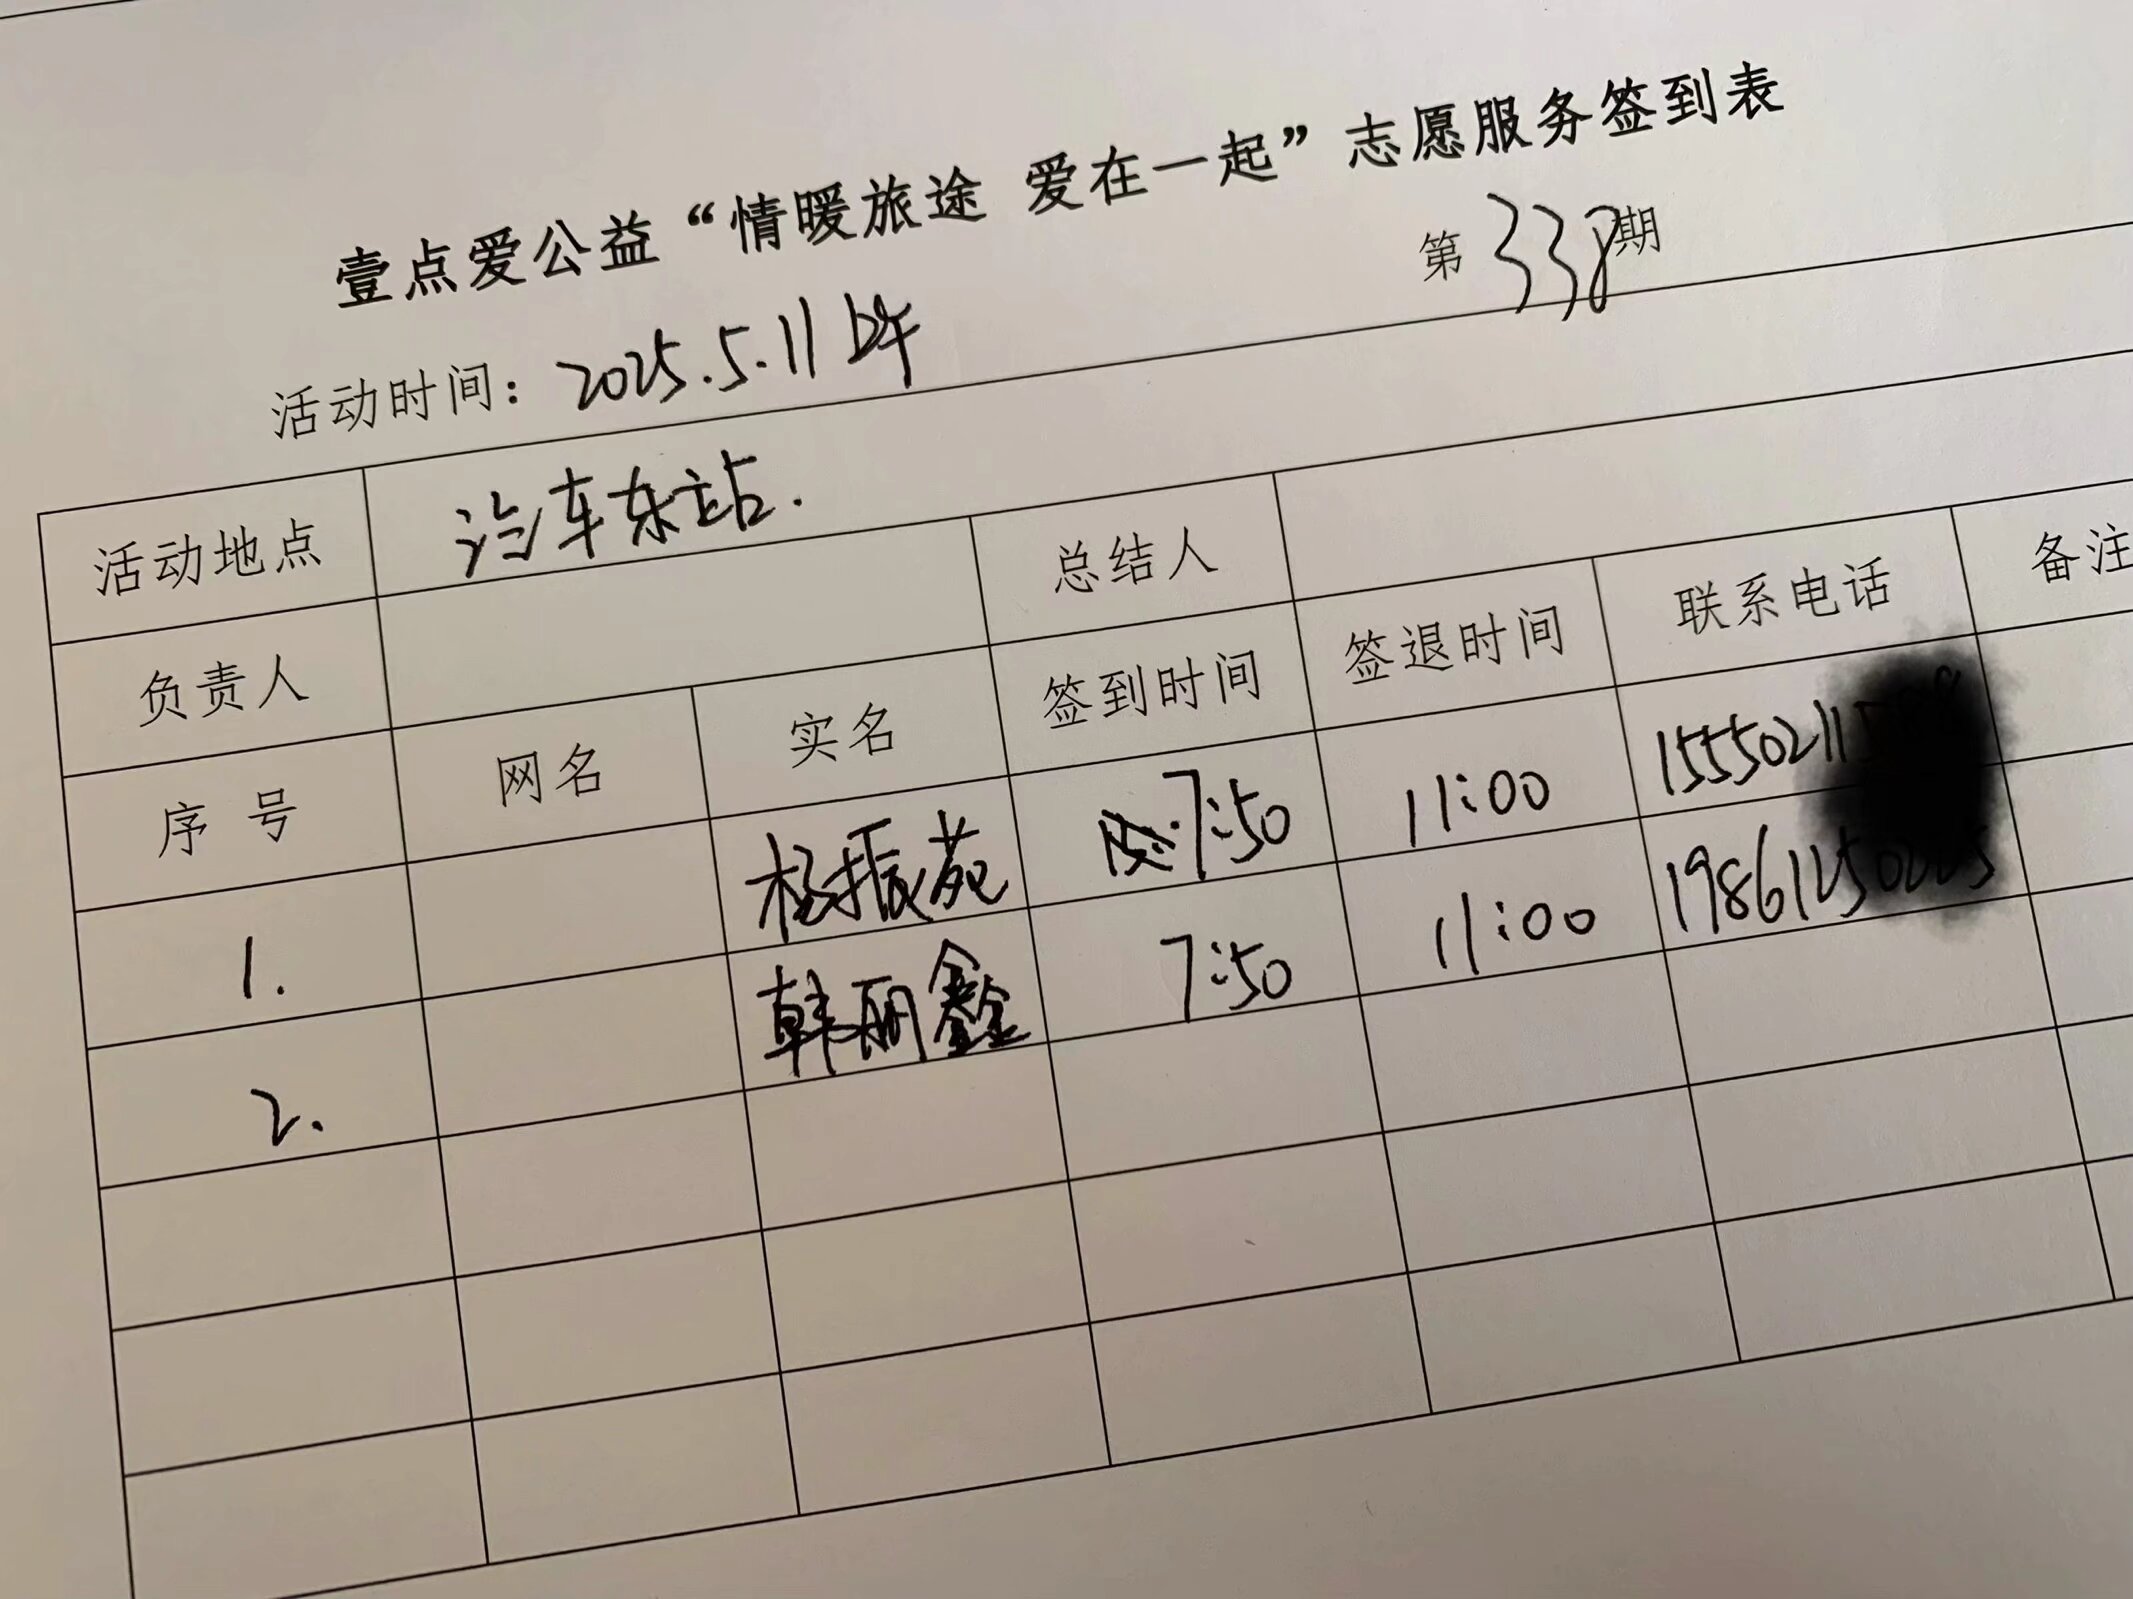 壹点爱公益“情暖旅途 爱在一起”志愿服务签到表
第338期
活动时间：2025.5.11上午
活动地点 汽车东站.
负责人 总结人
序号 网名 实名 签到时间 签退时间 联系电话 备注
1. 杨振苑 7:50 11:00 15550211
2. 韩丽鑫 7:50 11:00 198611250